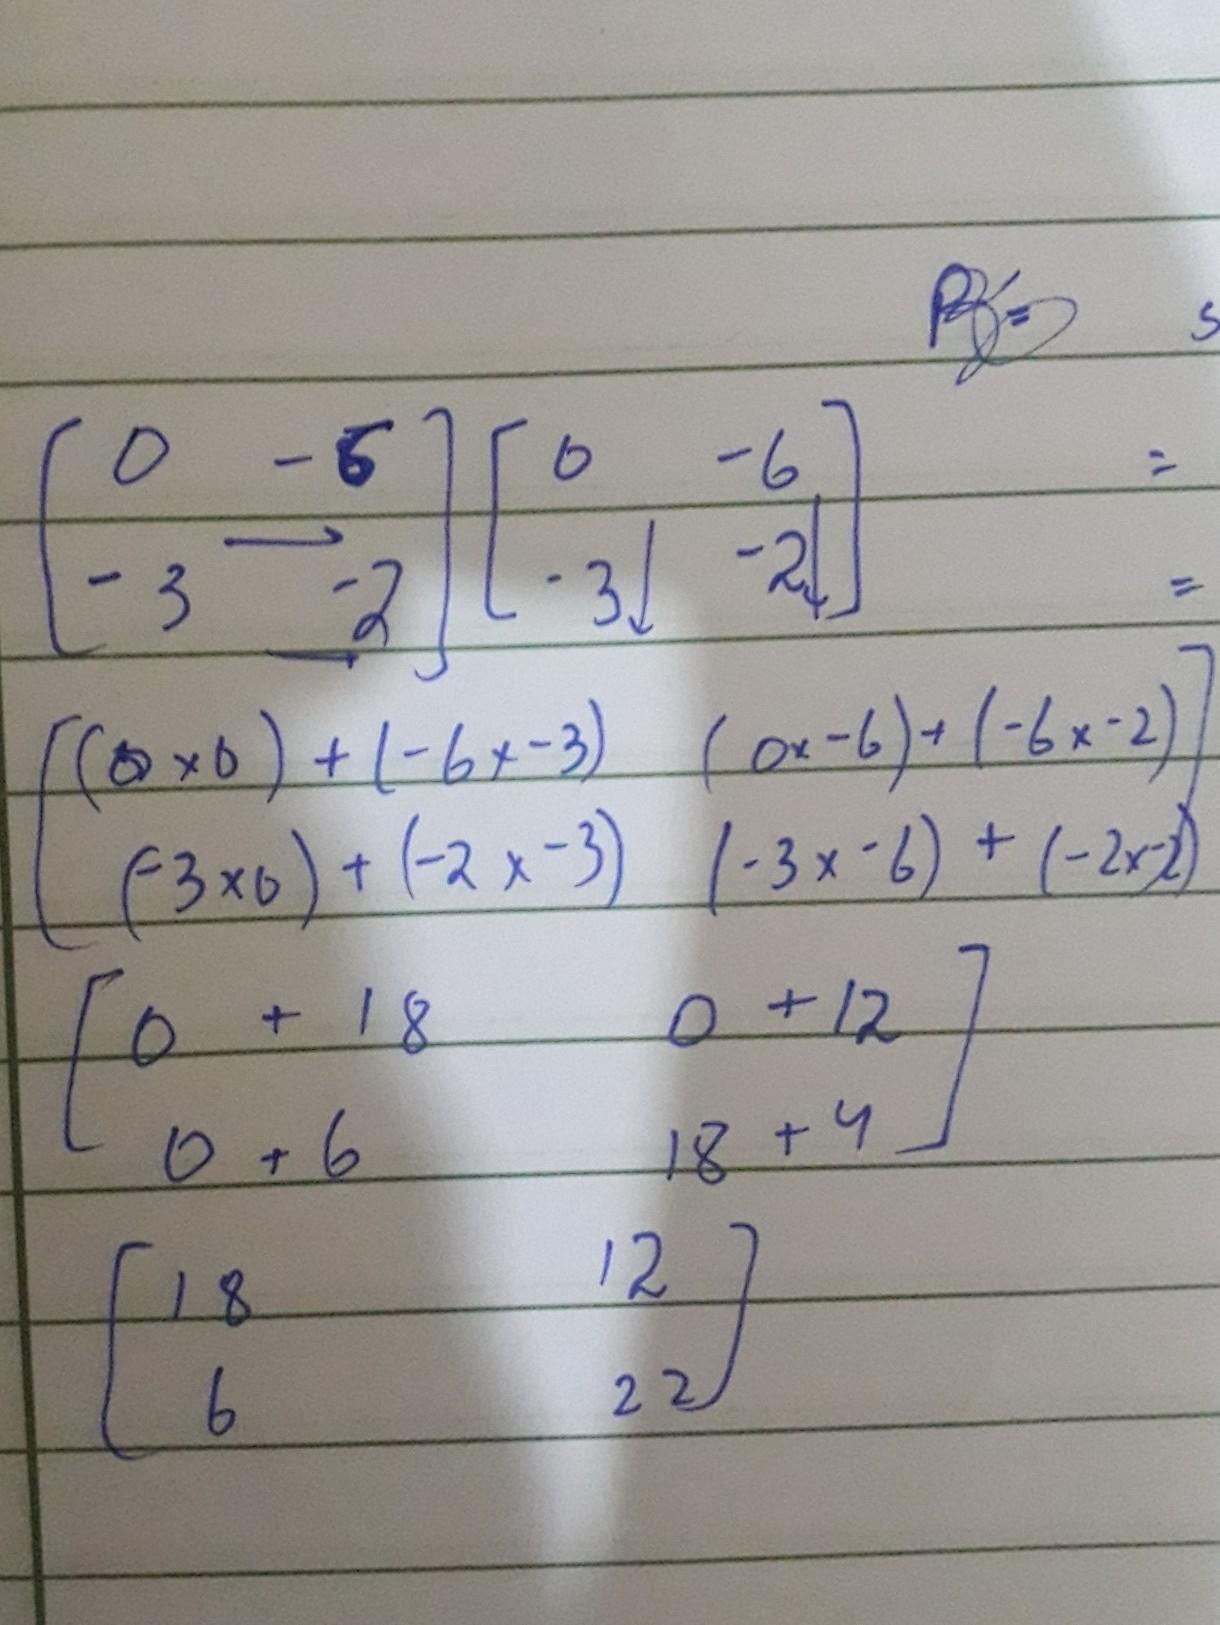 P =
s
[ 0 -6 ] [ 0 -6 ] =
[ -3 -2 ] [ -3 -2 ] =
[ (0×0) + (-6×-3) (0×-6) + (-6×-2) ]
[ (-3×0) + (-2×-3) (-3×-6) + (-2×-2) ]
[ 0 + 18 0 + 12 ]
[ 0 + 6 18 + 4 ]
[ 18 12 ]
[ 6 22 ]